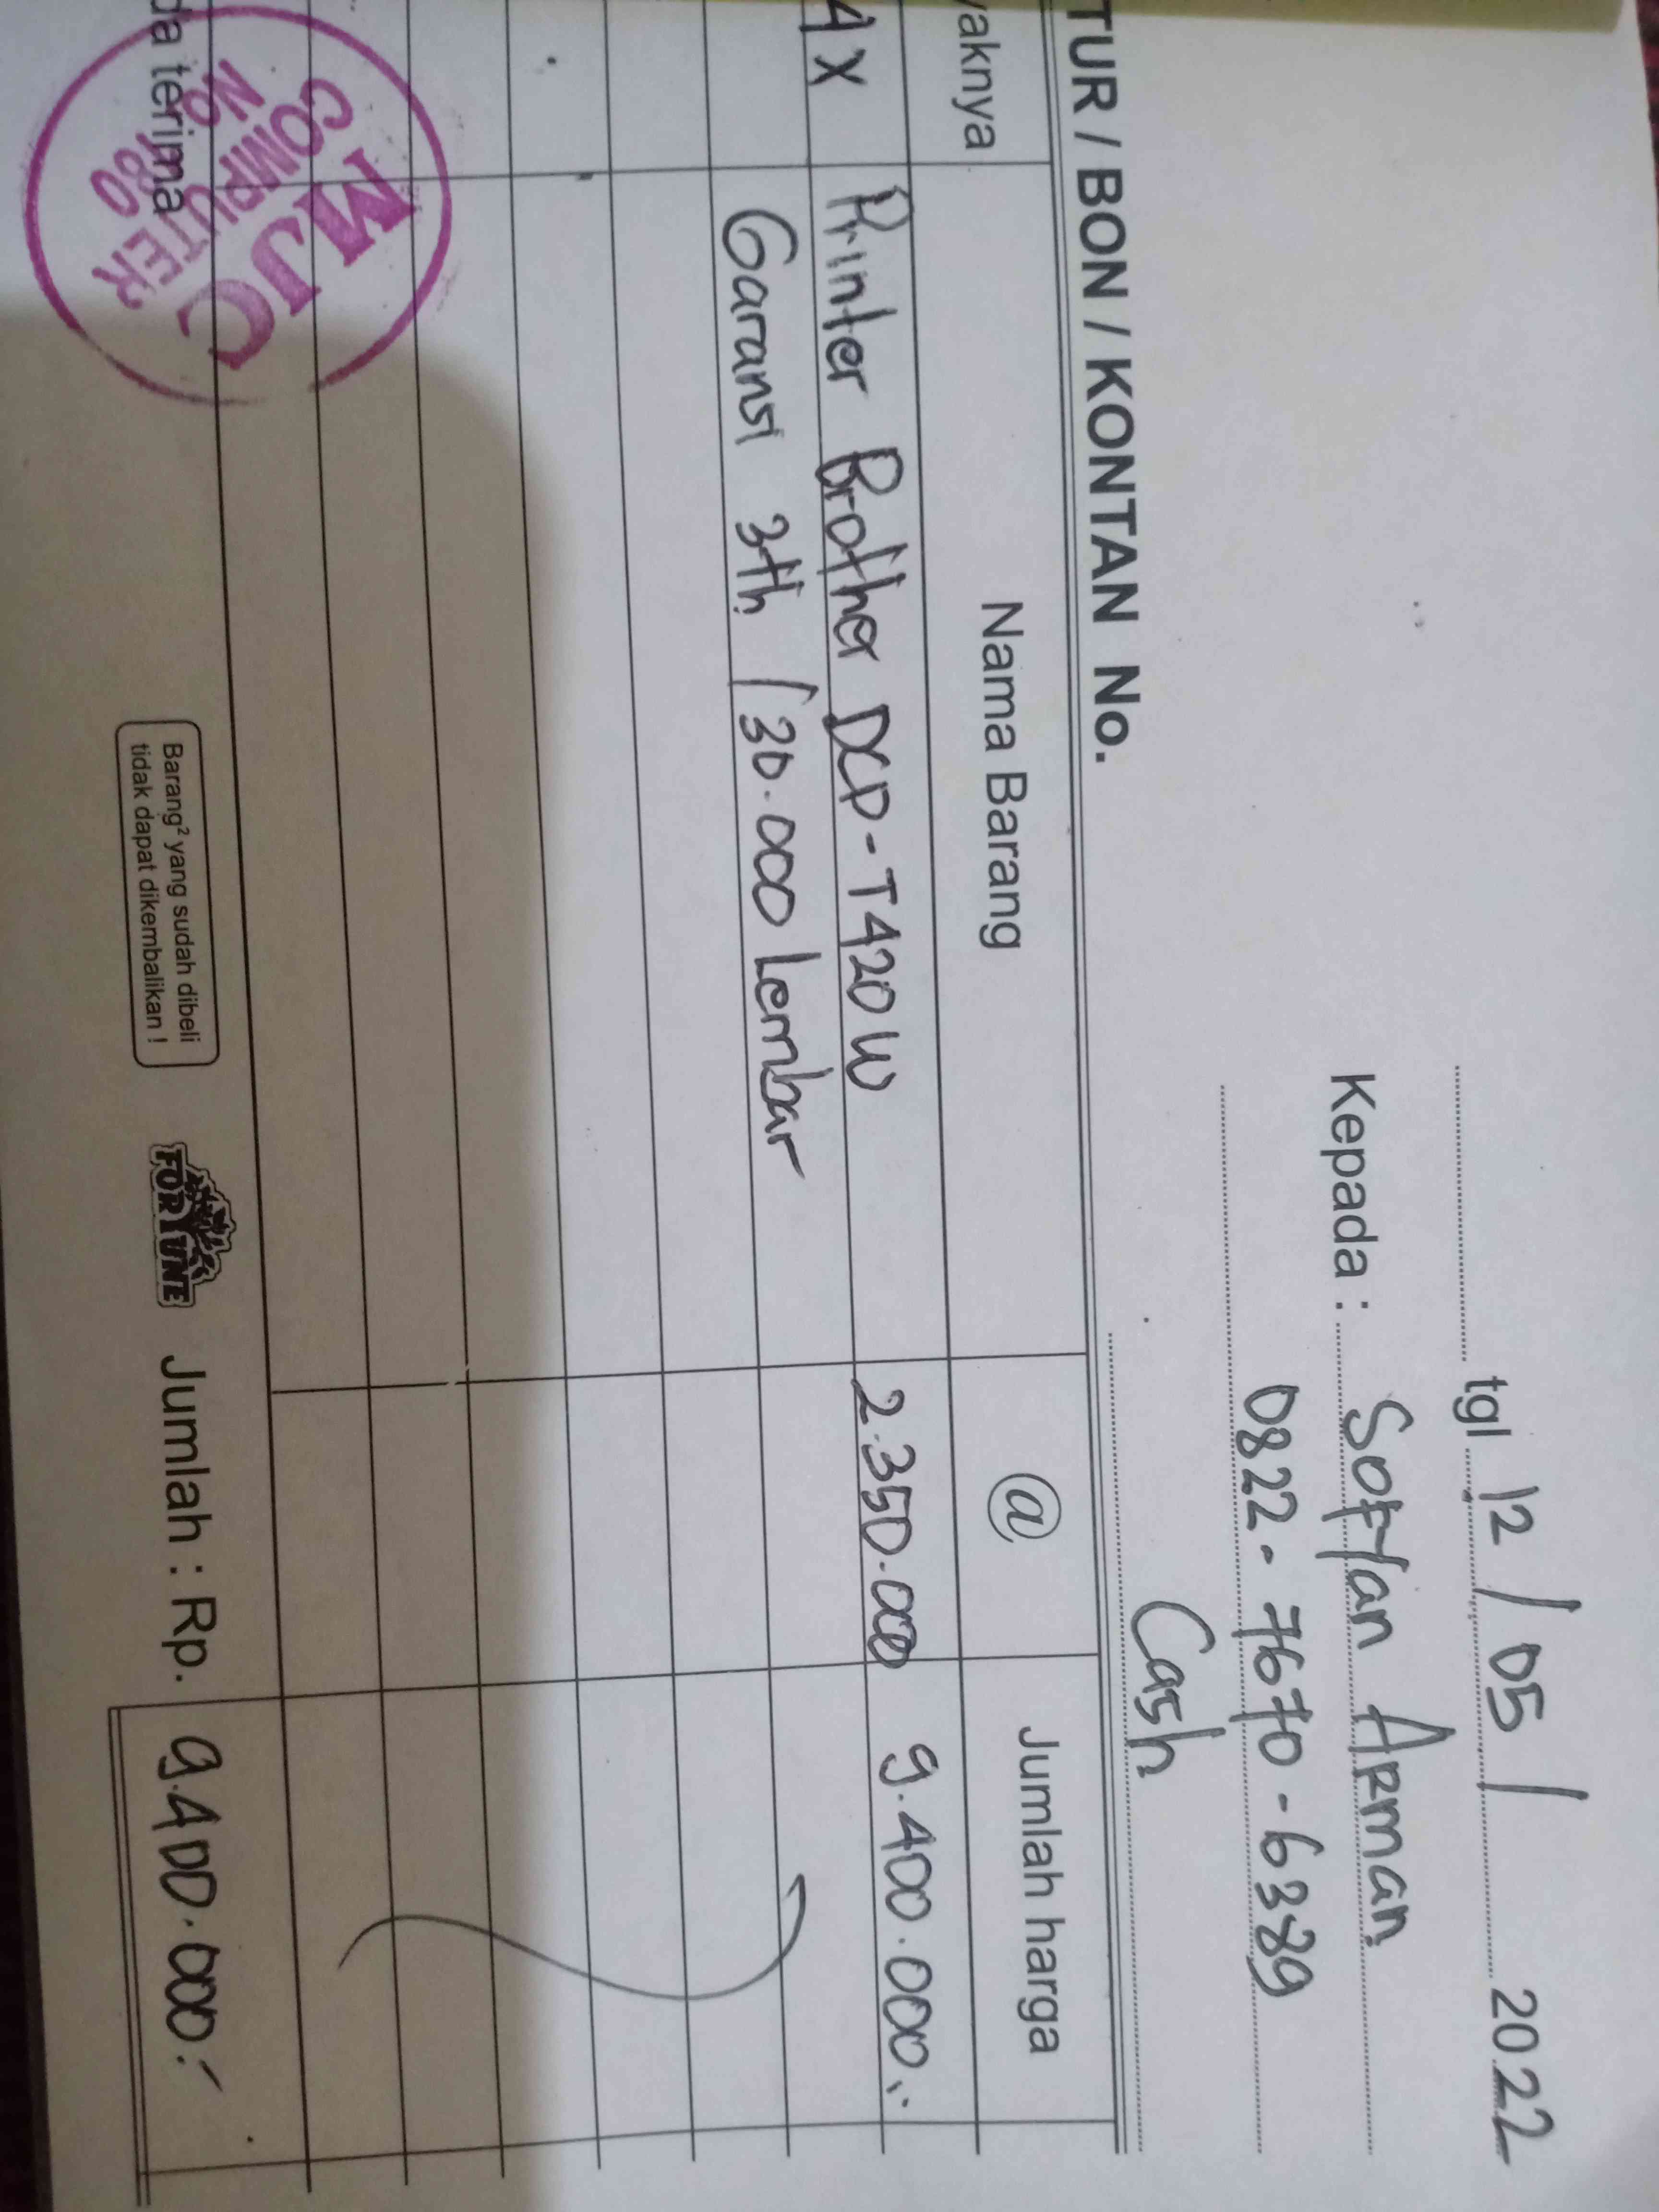 tgl 12 / 05 / 2022
Kepada : Sofyan Arman
0822-7670-6389
Cash
TUR / BON / KONTAN No.
yaknya Nama Barang @ Jumlah harga
4 x Printer Brother DCP-T420W 2.350.000 9.400.000,-
Garansi 3th / 30.000 Lembar
da terima
MJC
COMPUTER
NO
80
Barang² yang sudah dibeli
tidak dapat dikembalikan !
FORTUNE
Jumlah : Rp. 9.400.000,-